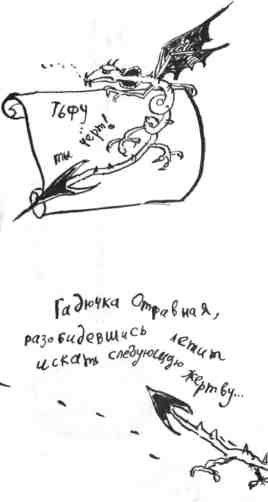 Тьфу
ты чёрт!
Гадючка Отравная,
разобидевшись летит
искать следующую жертву...